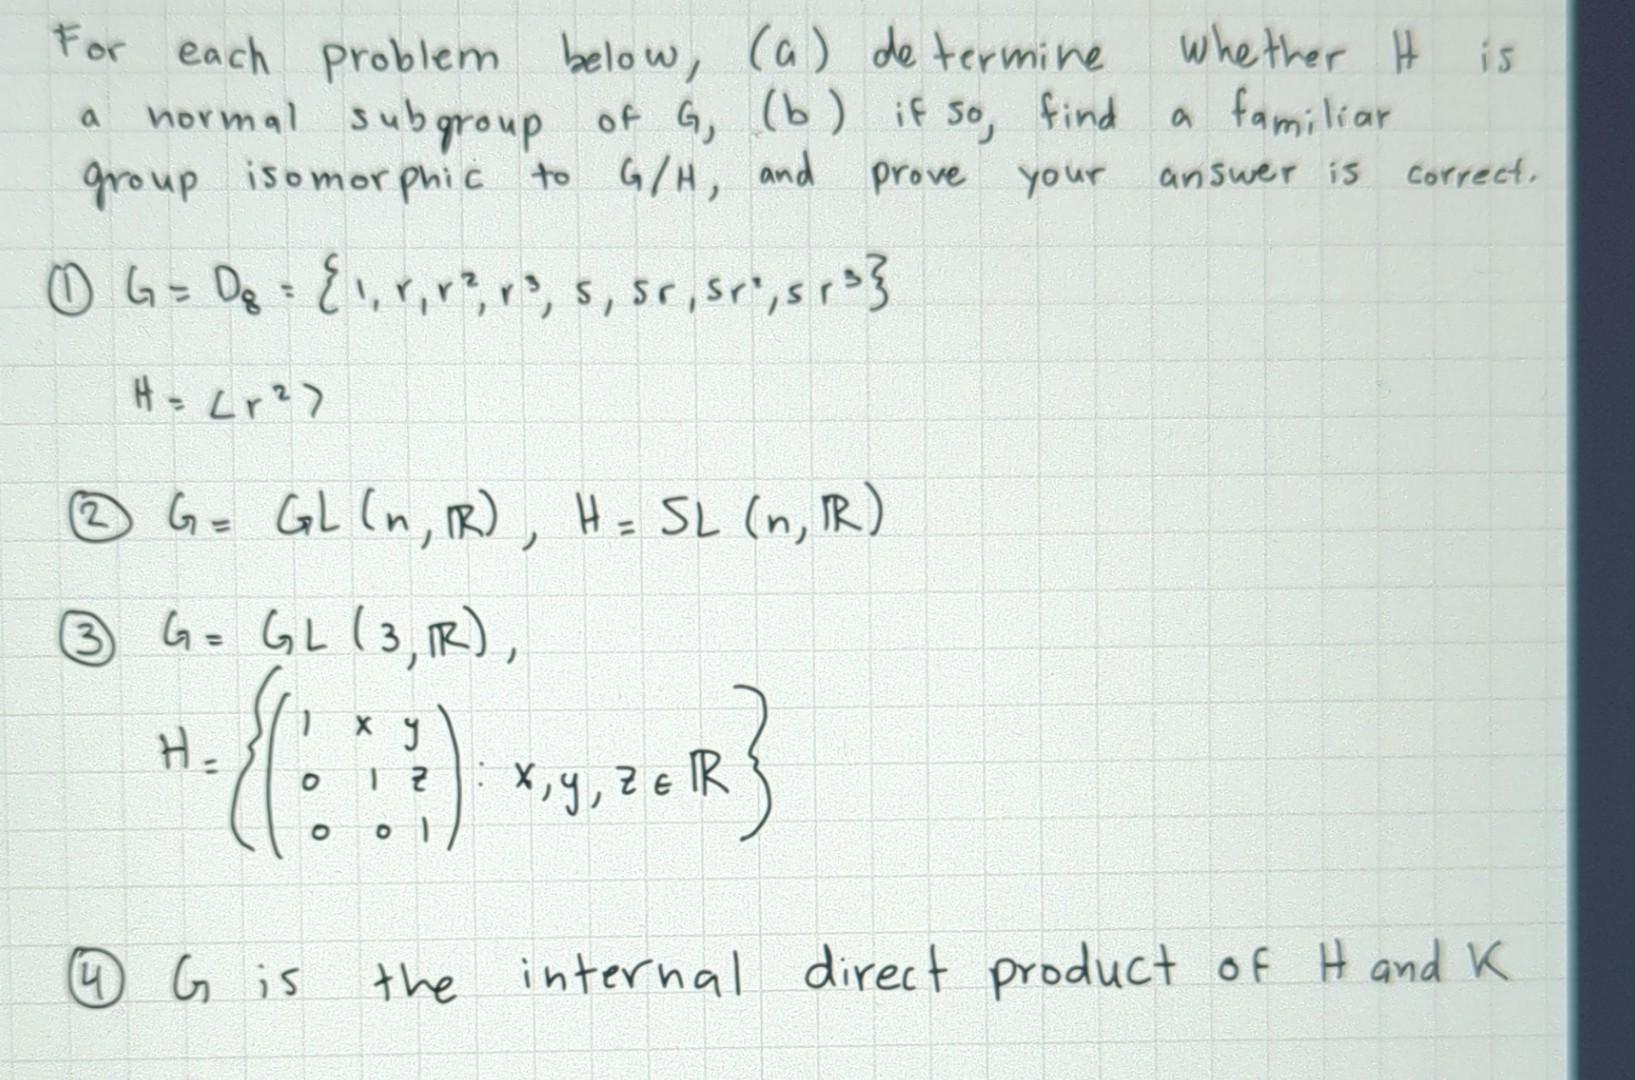 For each problem below, (a) determine whether H is
a normal subgroup of G, (b) if so, find a familiar
group isomorphic to G/H, and prove your answer is correct.
① G = D₈ = {1, r, r², r³, s, sr, sr², sr³}
H = <r²>
② G = GL (n, ℝ), H = SL (n, ℝ)
③ G = GL (3, ℝ),
H = {(1 x y
0 1 z
0 0 1) : x, y, z ∈ ℝ}
④ G is the internal direct product of H and K